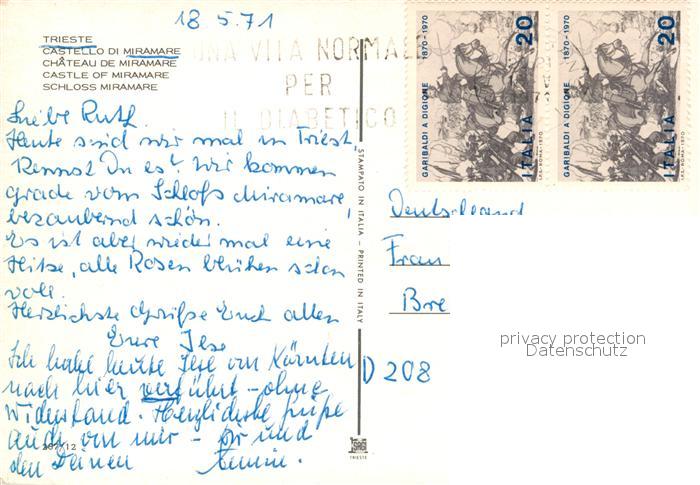 18.5.71
TRIESTE
CASTELLO DI MIRAMARE
CHÂTEAU DE MIRAMARE
CASTLE OF MIRAMARE
SCHLOSS MIRAMARE
UNA VITA NORMALE
PER
IL DIABETICO
GARIBALDI A DIGIONE 1870-1970
ITALIA 20
I.P.S.-ROMA-1970
GARIBALDI A DIGIONE 1870-1970
ITALIA 20
I.P.S.-ROMA-1970
Liebe Ruth.
Heute sind wir mal in Triest.
Kennst Du es? Wir kommen
grade vom Schloß Miramare,
bezaubernd schön.
Es ist aber wieder mal eine
Hitze, alle Rosen blühen schon
voll.
Herzlichste Grüße Euch allen
Eure Ilse
Ich habe heute Ilse von Kärnten
nach hier verführt – ohne
Widerstand. Herzlichste Grüße
auch von mir – Dir und
den Deinen
207/12
STAMPATO IN ITALIA – PRINTED IN ITALY
SAGI
TRIESTE
Deutschland
Frau
Bre
D 208
privacy protection
Datenschutz